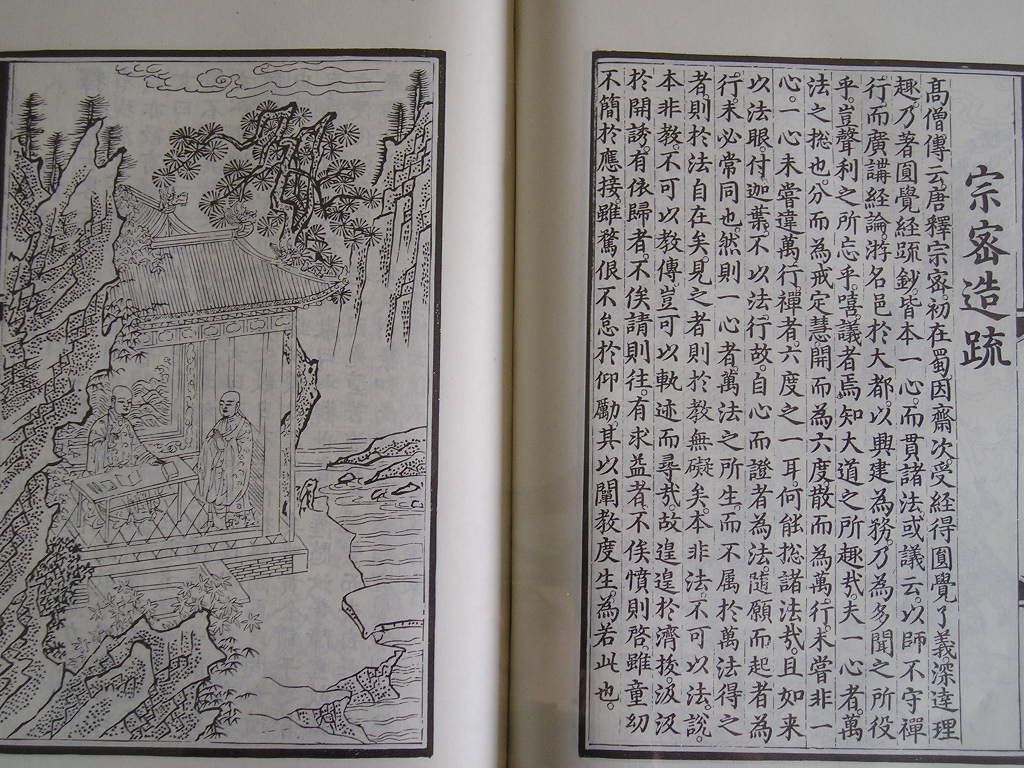 宗密造疏
高僧傳云。唐釋宗密。初在蜀因齋次受經得圓覺了義深達理
趣。乃著圓覺經疏鈔皆本一心。而貫諸法或議云。以師不守禪
行而廣講經論。游名邑於大都以興建為務。乃為多聞之所役
乎。豈聲利之所忘乎。嘻。議者焉知大道之所趣哉。夫一心者。萬
法之揔也。分而為戒定慧開而為六度散而為萬行。未嘗非一
心。一心未嘗違萬行禪者六度之一耳。何能揔諸法哉。且如来
以法眼付迦葉不以法行。故自心而證者為法隨願而起者為
行。未必常同也。然則一心者萬法之所生。而不属於萬法得之
者則於法自在矣。見之者則於教無礙矣。本非法。不可以法說。
本非教。不可以教傳。豈可以軌迹而尋哉。故遑遑於濟拔。汲汲
於開誘。有依歸者。不俟請則往。有求益者不俟憤則啓。雖童幼
不簡於應接。雖驁佷不怠於仰勵。其以闡教度生。為若此也。